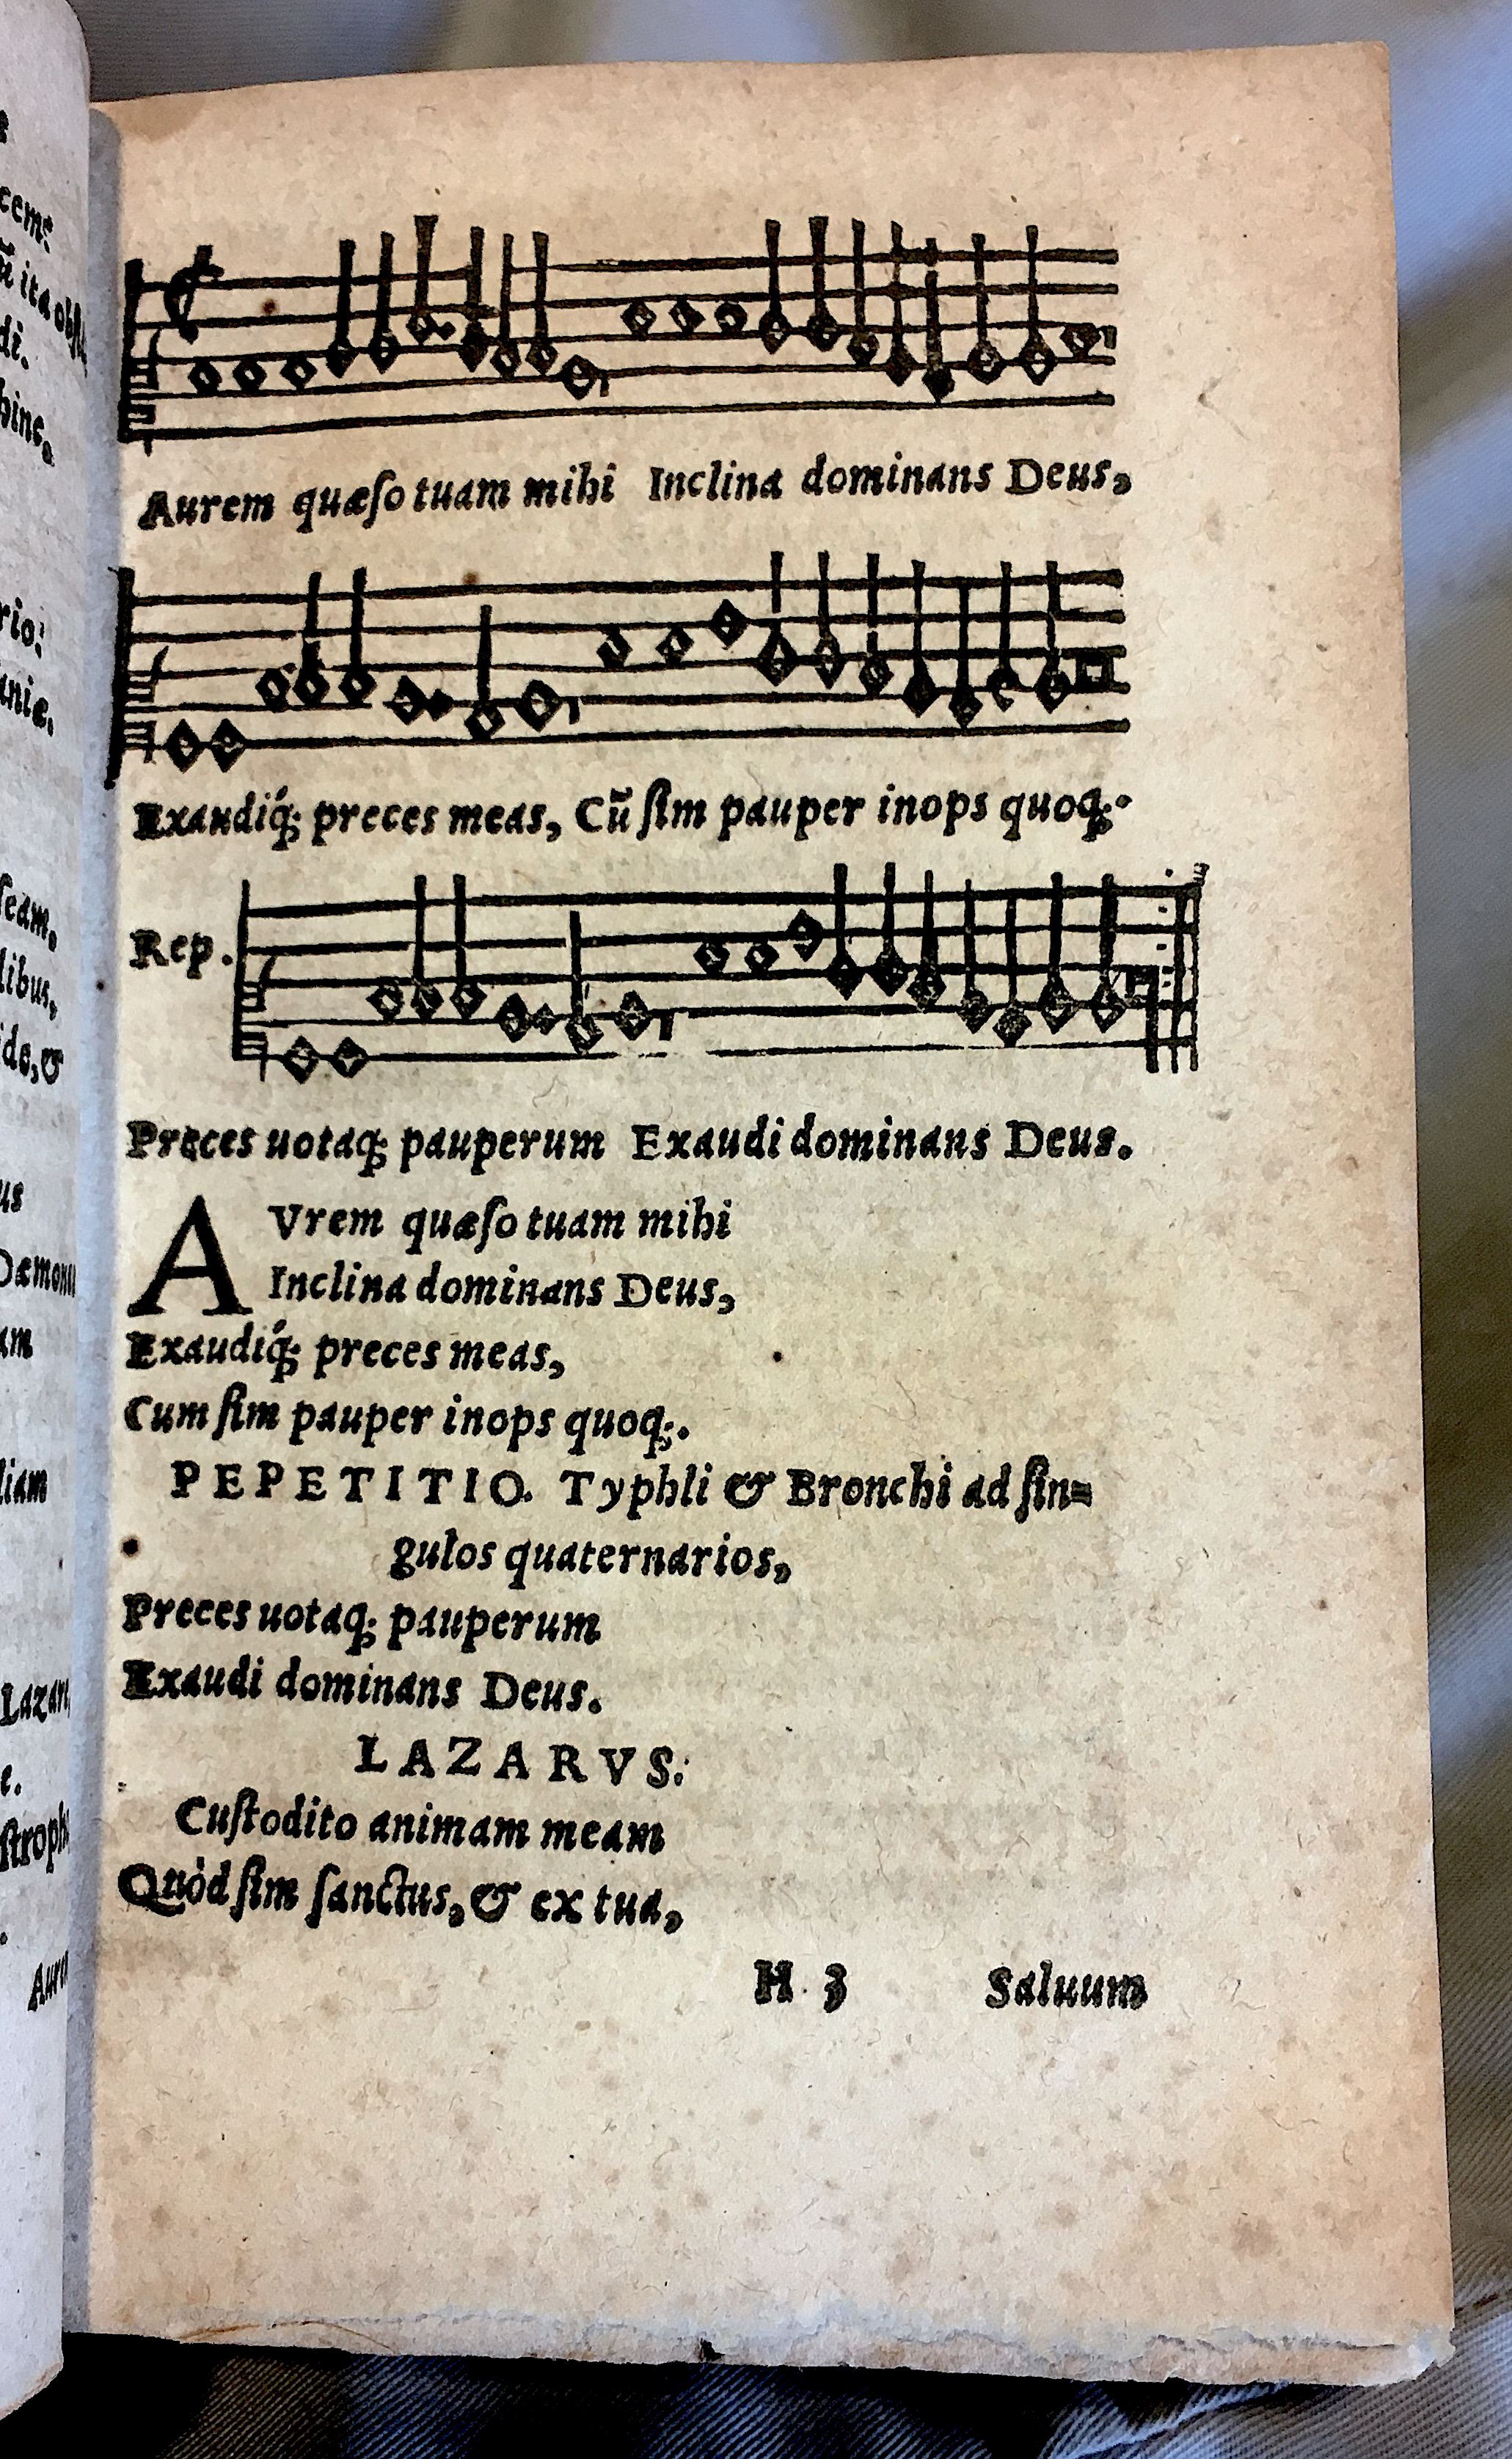 Aurem quæſo tuam mihi Inclina dominans Deus,
Exaudiq́; preces meas, Cũ ſim pauper inops quoq;.
Rep.
Preces uotaq; pauperum Exaudi dominans Deus.
AVrem quæſo tuam mihi
Inclina dominans Deus,
Exaudiq́; preces meas,
Cum ſim pauper inops quoq;.
PEPETITIO. Typhli & Bronchi ad ſin=
gulos quaternarios,
Preces uotaq; pauperum
Exaudi dominans Deus.
LAZARVS.
Cuſtodito animam meam
Quòd ſim ſanctus, & ex tua,
H 3 Saluum